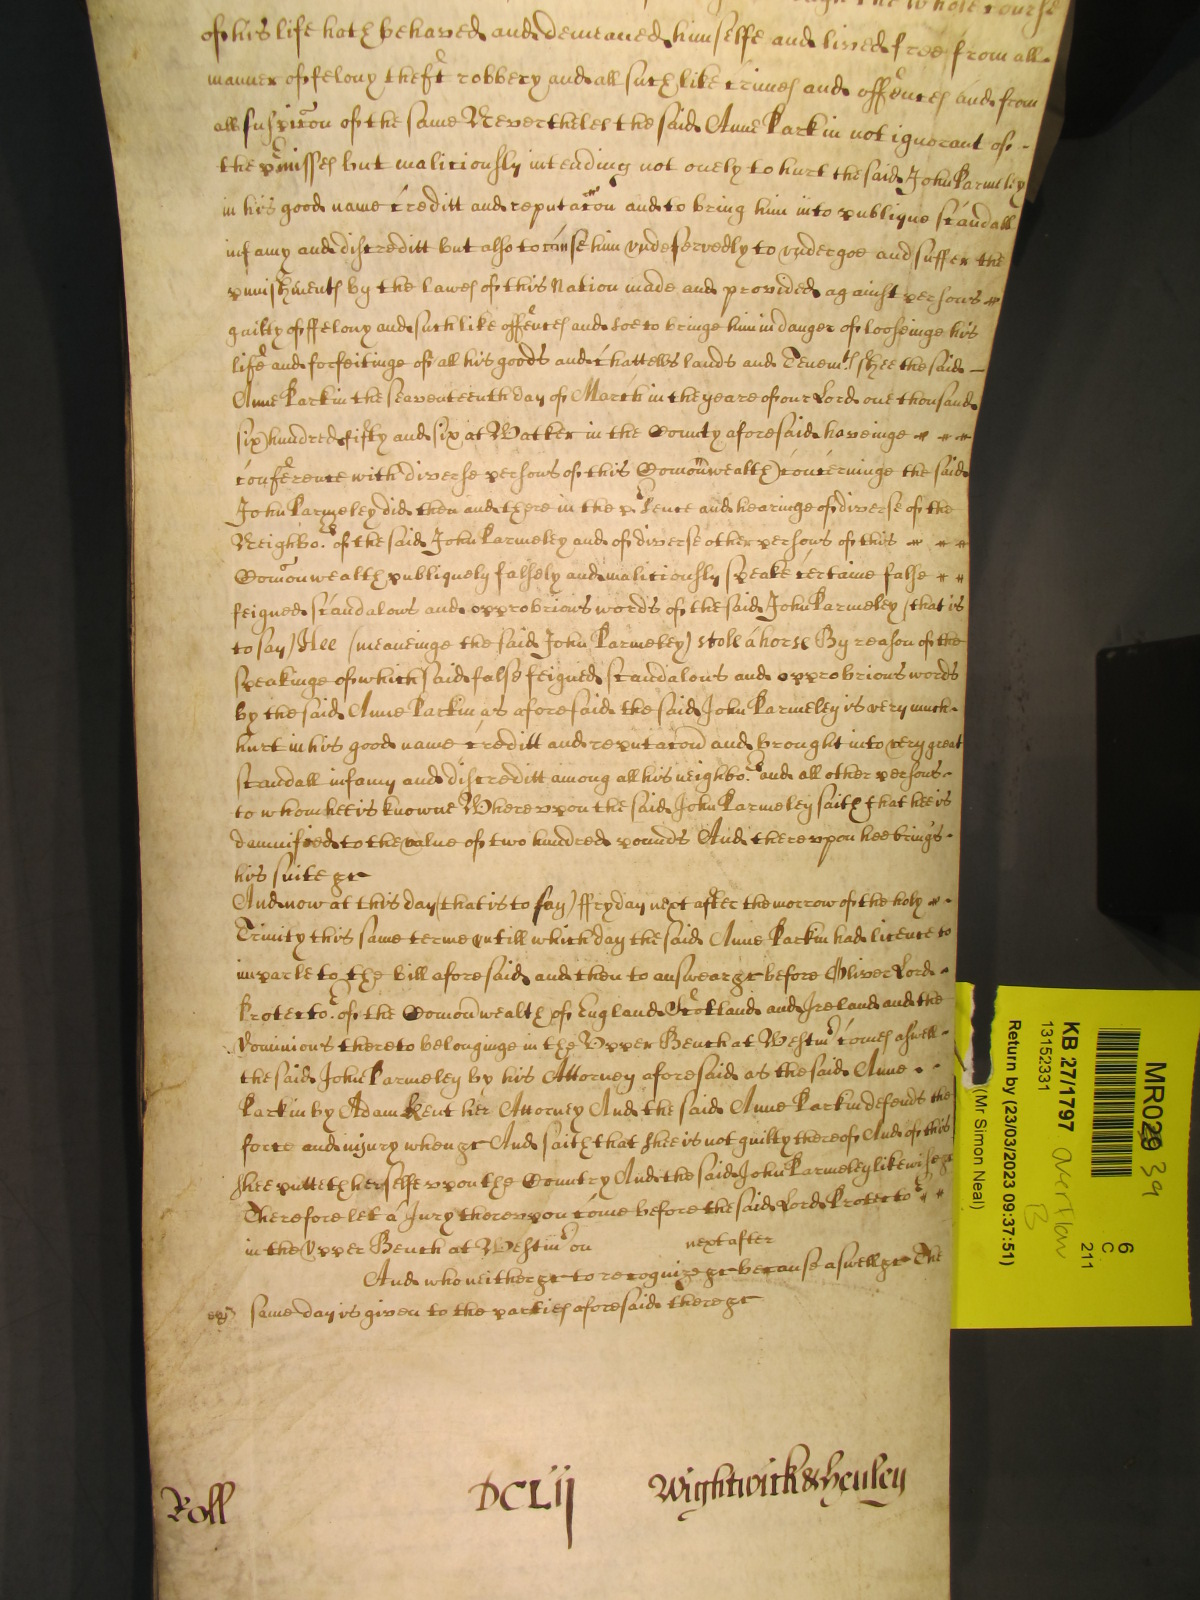 the whole course
of his life hath behaved and demeaned himselfe and lived free from all
manner of felony theft robbery and all such like crimes and offences and from
all suspicon of the same Nevertheles the said Anne Parkin not ignorant of
the pmisses but maliciously intending not onely to hurt the said John Parmeley
in his good name creditt and reputacon and to bring him into publique scandall
infamy and discreditt but also to cause him undeservedly to undergoe and suffer the
punishments by the lawes of this Nation made and provided against persons
guilty of ffelony and such like offences and soe to bringe him in danger of looseinge his
life and forfeitinge of all his goods and chattells lands and Tenemts shee the said
Anne Parkin the seaventeenth day of March in the yeare of our Lord one thousand
six hundred fifty and six at Watker in the County aforesaid haveinge
conference with diverse persons of this Comonwealth concerninge the said
John Parmeley did then and there in the psence and hearinge of diverse of the
Neighbors of the said John Parmeley and of diverse other persons of this
Comonwealth publiquely falsely and maliciously speake certaine false
feigned scandalous and opprobrious words of the said John Parmeley (that is
to say) Hee (meaneinge the said John Parmeley) stoll a horse By reason of the
speakinge of which said false feigned scandalous and opprobrious words
by the said Anne Parkin as aforesaid the said John Parmeley is very much
hurt in his good name creditt and reputacon and brought into very great
scandall infamy and discreditt among all his neighbors and all other persons
to whom hee is knowne Whereupon the said John Parmeley saith that hee is
damnified to the value of two hundred pounds And thereupon hee brings
his suite &c
And now at this day (that is to say) ffryday next after the morrow of the holy
Trinity this same terme untill which day the said Anne Parkin had licence to
imparle to the bill aforesaid and then to answear &c before Oliver Lord
Protector of the Comonwealth of England Scotland and Ireland and the
Dominions thereto belonginge in the Upper Bench at Westmr comes aswell
the said John Parmeley by his Attorney aforesaid as the said Anne
Parkin by Adam Kent her Attorney And the said Anne Parkin defends the
force and injury when &c And saith that shee is not guilty thereof And of this
shee putteth herselfe upon the Country And the said John Parmeley likewise &c
Therefore let a Jury thereupon come before the said Lord Protector
in the Upper Bench at Westmr on next after
And who neither &c to recognize &c because aswell &c The
same day is given to the parties aforesaid there &c
Roll DCLij Wightwick & Henley
MR029 39
6
C
211
KB 27/1797 overflow B
13152331
(Mr Simon Neal)
Return by (23/03/2023 09:37:51)